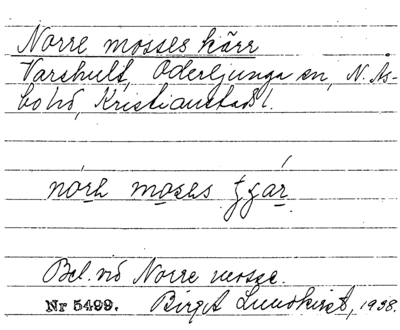 Norre mosses kärr
Varshult, Oderljunga sn, N. Ås-
bo hd, Kristianstads l.
Bel. vid Norre mosse.
Nr 5499. Birgit Lundkvist, 1938.